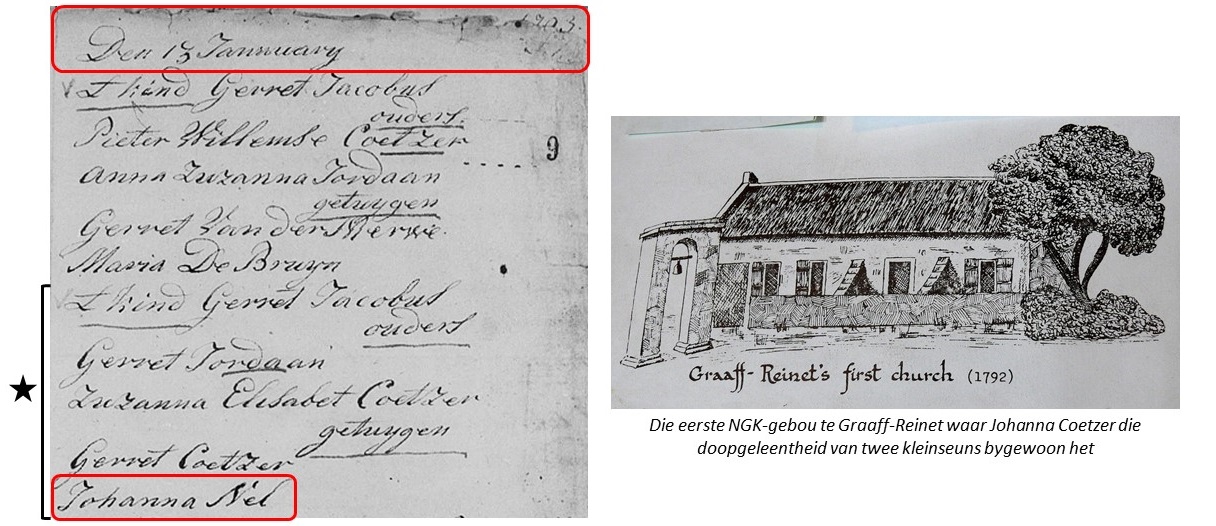 1793.
Den 13 Jannuary
t kind Gerret Jacobus
ouders.
Pieter Willemse Coetzer
9
Anna Zuzanna Jordaan
getuygen
Gerret Van der Merwe.
Maria De Bruyn
t kind Gerret Jacobus
ouders
Gerret Jordaan
Zuzanna Elisabet Coetzer
getuygen
Gerret Coetzer
Johanna Nel
Graaff-Reinet's first church (1792)
Die eerste NGK-gebou te Graaff-Reinet waar Johanna Coetzer die
doopgeleentheid van twee kleinseuns bygewoon het